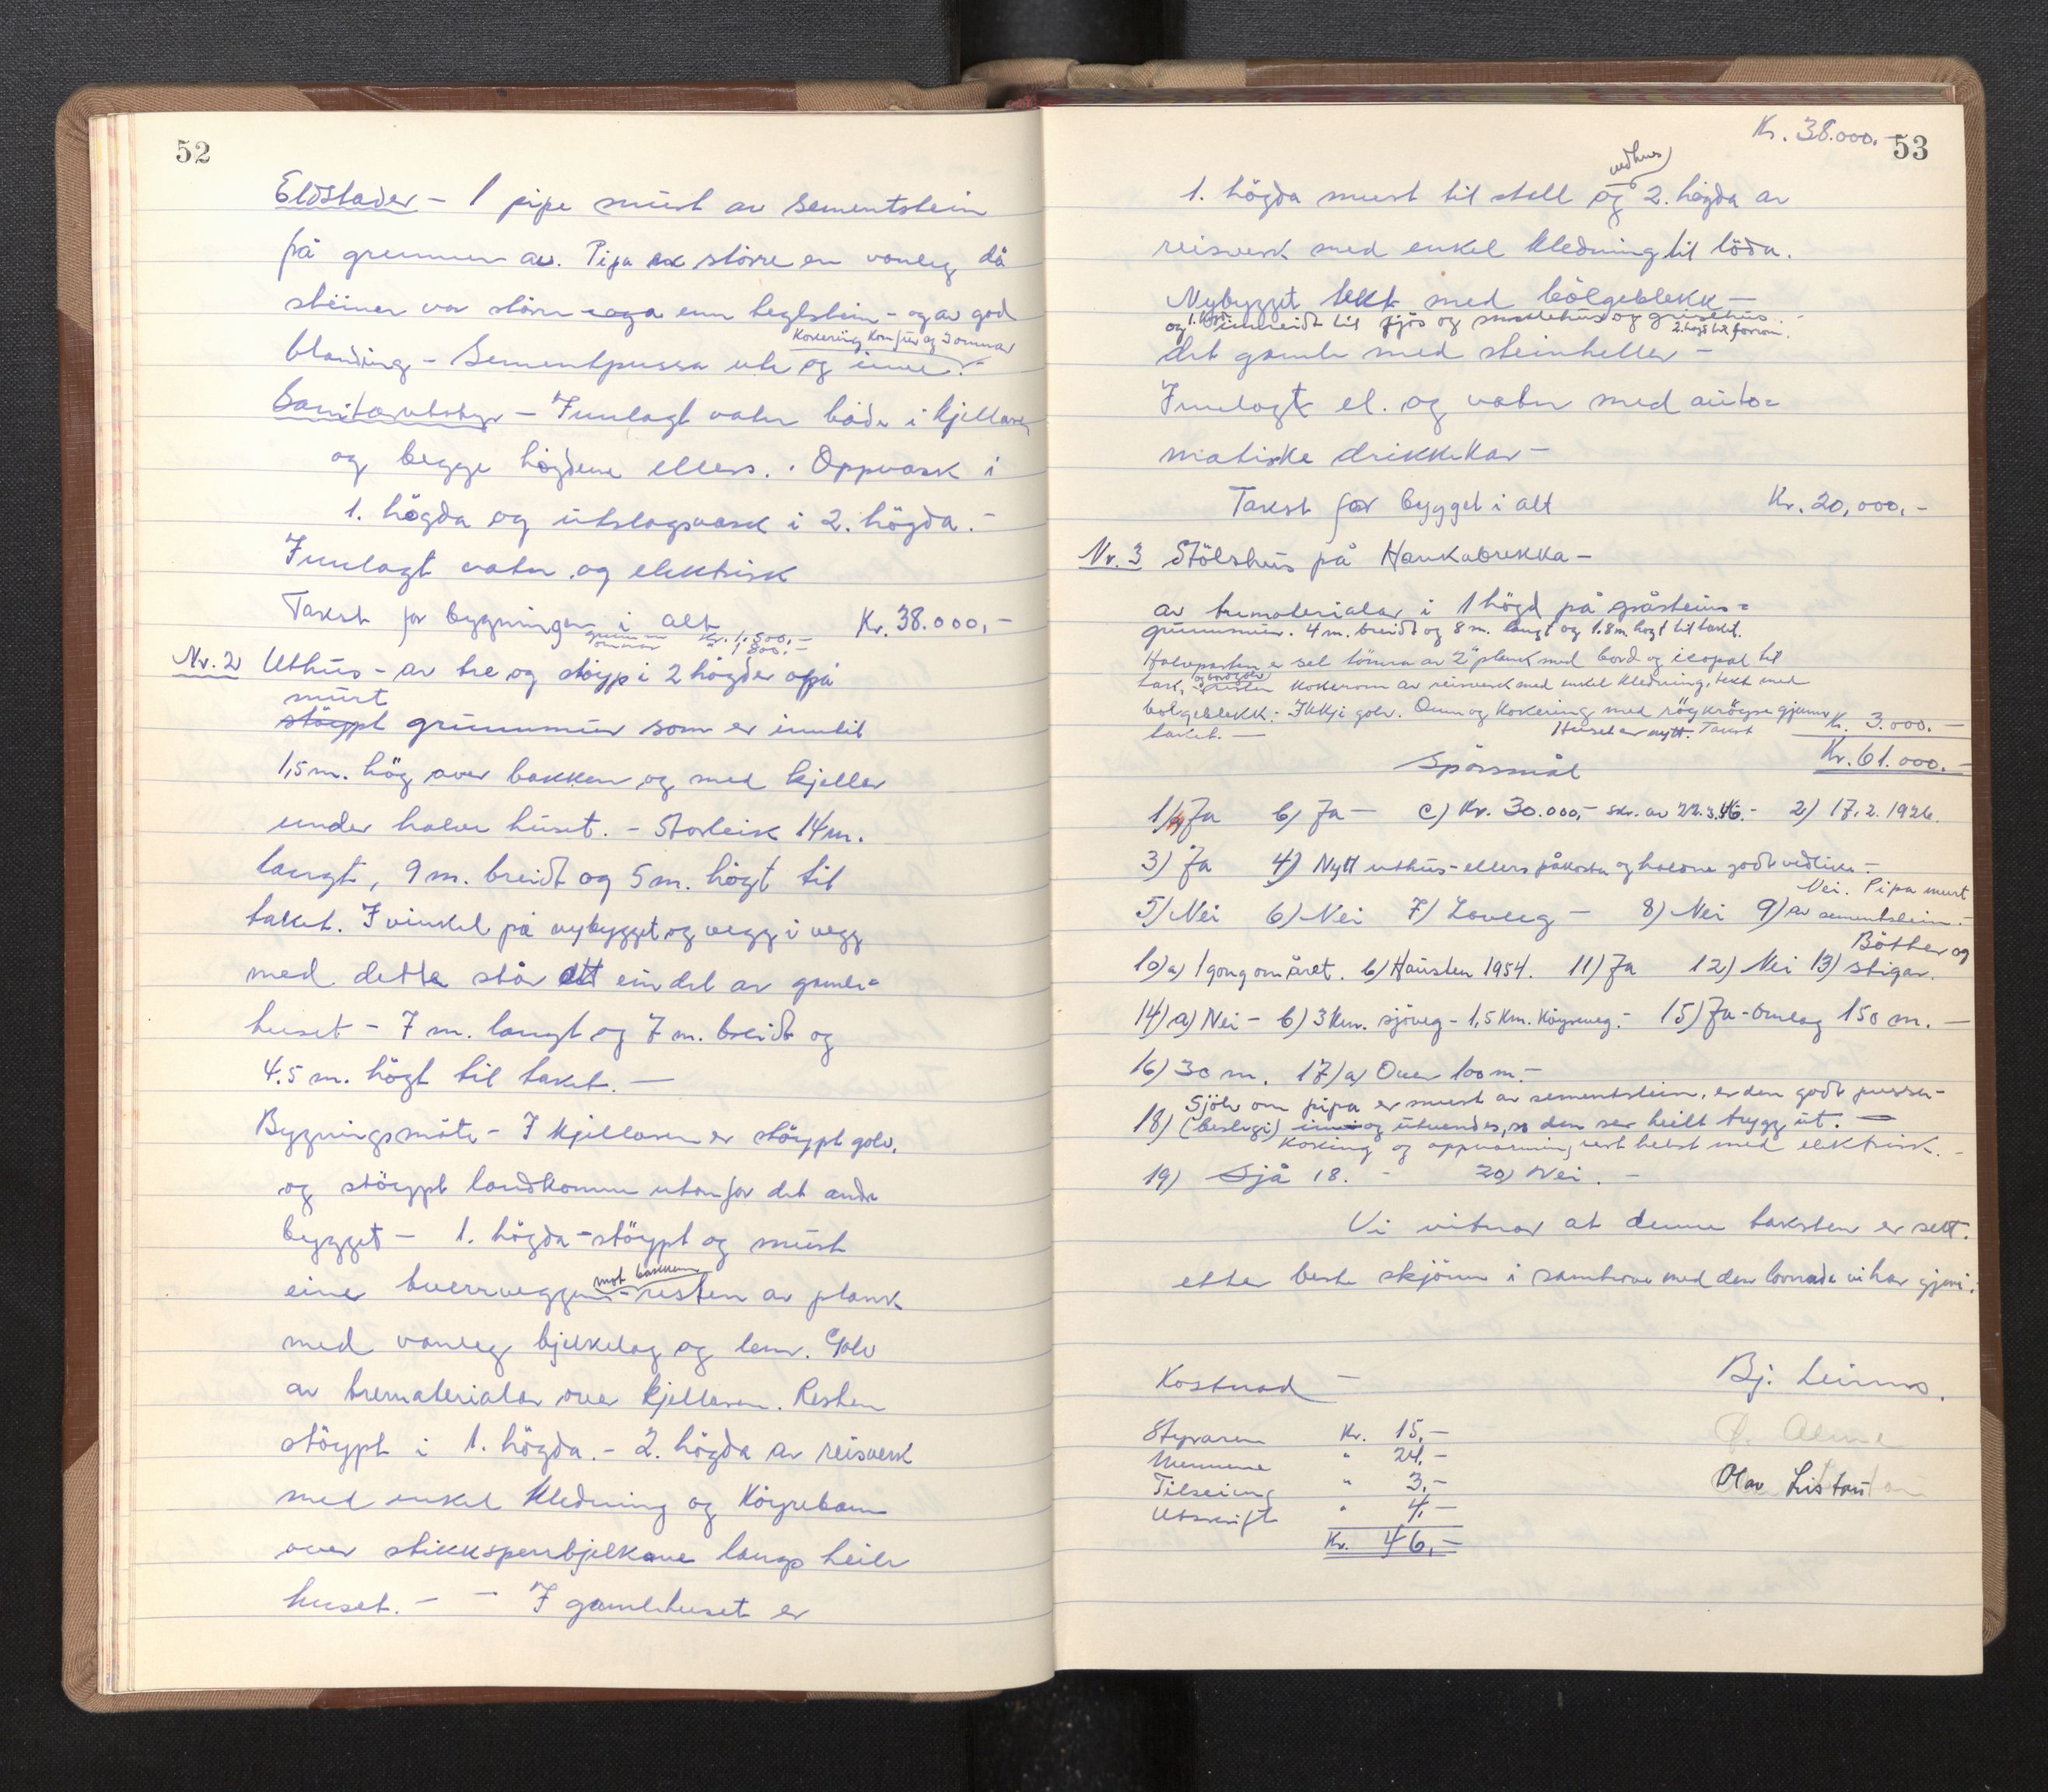 52
Eldstader - 1 pipe murt av sementstein
på grunnmur av. Pipa er större en vanleg då
steinen var större enn teglstein - og av god
Kokering Komfur og 3 omnar
blanding - Sementpussa ute og inne.
Sanitærutstyr - Innlagt vatn både i kjellaren
og begge högdene ellers. Oppvask i
1. högda og utslagsvask i 2. högda. -
Innlagt vatn og elektrisk
Takst for bygningen i alt Kr. 38.000,-
grunnmur Kr. 1.500.-
omnar " 1 800.-
Nr. 2 Uthus - av tre og stöyp i 2 högder på
murt
stöypt grunnmur som er inntil
1,5 m. hög over bakken og med kjeller
under halve huset. - Storleik 14 m.
langt, 9 m. breidt og 5 m. högt til
taket. I vinkel på nybygget og vegg i vegg
med dette står ett ein del av gamle-
huset - 7 m. langt og 7 m. breidt og
4.5 m. högt til taket. -
Bygningsmåte - I kjellaren er stöypt golv,
og stöypt landkumme utanfor det andre
bygget - 1. högda - stöypt og murt
mot bakken
eine tverrveggen - resten av plank
med vanleg bjelkelag og lem. Golv
av trematerialar over kjellaren. Resten
stöypt i 1. högda. - 2. högda av reisverk
med enkel kledning og köyrebom
over stikksperrbjelkane langs heile
huset. - - I gamlehuset er
53
Kr. 38.000.-
vedhus
1. högda murt til stell og 2. högda av
reisverk med enkel kledning til löda.
Nybygget tekt med bölgeblekk -
og 1. högd innreidt til fjös og smalehus og grisehus.
2. högd til forrom.
det gamle med steinheller -
Innlagt el. og vatn med auto-
matiske drikkekar -
Takst for bygget i alt Kr. 20,000.-
Nr. 3 Stölshus på Haukabrekka -
av tremateriala i 1 högd på gråsteins-
grunnmur. 4 m. breidt og 8 m. langt og 1.8 m. högt til taket.
Halvparten er sel tömra av 2" plank med bord og icopal til
og bordgolv
tak, resten kokerom av reisverk med enkel kledning, tekt med
bölgeblekk. - Ikkje golv. Omn og kokering med rögkröyse gjennom
taket. - Huset er nytt. Takst Kr. 3.000.-
Kr. 61.000.-
Spörsmål
1) a) Ja b) Ja - c) Kr. 30.000,- skr. av 22.3.46.- 2) 17.2.1926.
3) Ja 4) Nytt uthus - ellers påkosta og husone godt vedlike -
Nei. Pipa murt
5) Nei 6) Nei 7) Lovleg - 8) Nei 9) av sementstein. -
Bötter og
10) a) 1 gong om året. b) Hausten 1954. 11) Ja 12) Nei 13) stigar.
14) a) Nei - b) 3 km. sjöveg - 1,5 km. köyreveg. - 15) Ja - omlag 150 m. -
16) 30 m. 17) a) Over 100 m. -
Sjölv om pipa er murt av sementstein, er den godt pussa -
18) (beslegi) inni og utvendes, so den ser heilt trygg ut. -
Koking og oppvarming vert helst med elektrisk. -
19) Sjå 18. - 20) Nei. -
Vi vitnar at denne taksten er sett
etter beste skjönn i samhöve med den lovnade vi har gjevi.
Kostnad -
Bj. Leirmo.
Styraren Kr. 15,-
Mennene " 24,-
Tilseing " 3,-
Olav Listau
Utskrift " 4,-
Kr. 46,-